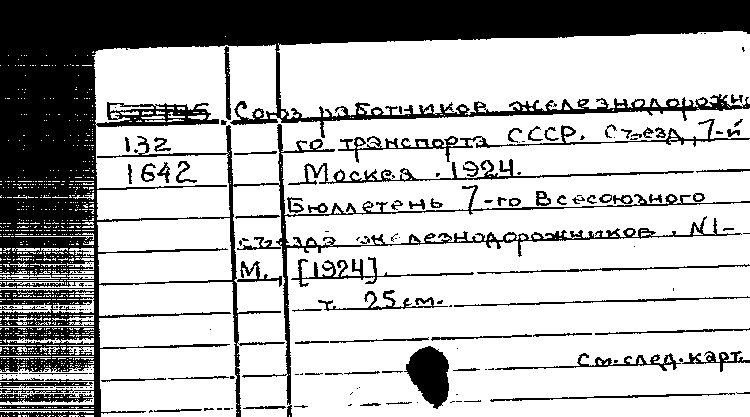 Союз работников железнодорожн
132 го транспорта СССР. Съезд, 7-й
1642 Москва. 1924.
Бюллетень 7-го Всесоюзного
съезда железнодорожников. N1-
М., [1924].
т. 25 см.
См. след. карт.